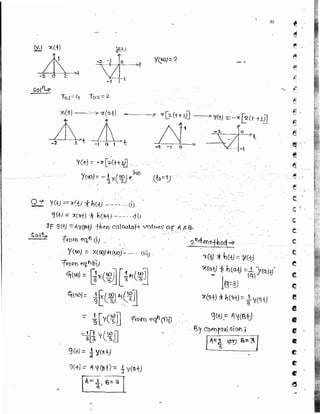 82
(iv) x(t)
y(t)
Y(ω)=?
-2 0 2 t
-2 -1 0 t
-1
Solⁿ→
T₀₁=4 T₀₂=2
x(t) → x(2t) → x[2(t+1)] → y(t) = -x[2(t+1)]
-2 2 t
-1 0 1 t
-2 -1 0
y(t) = -x[2(t+1)]
Y(ω) = -1/2 X(ω/2) e^jω (t₀=1)
Q→ y(t) = x(t) * h(t) ------ (i)
g(t) = x(3t) * h(3t) ------ (ii)
If g(t) = A y(Bt) then calculate values of A & B.
Solⁿ→
From eqⁿ (i)
Y(ω) = X(ω) H(ω) ------ (iii)
From eqⁿ (ii)
G(ω) = [1/3 X(ω/3)] [1/3 H(ω/3)]
G(ω) = 1/9 [X(ω/3) H(ω/3)]
= 1/9 [Y(ω/3)] From eqⁿ (iii)
= 1/3 [1/3 Y(ω/3)]
g(t) = 1/3 y(3t)
g(t) = A y(Bt) = 1/3 y(3t)
A = 1/3, B = 3
2nd method→
x(t) * h(t) = y(t)
x(at) * h(at) = 1/|a| y(at)
a=3
x(3t) * h(3t) = 1/3 y(3t)
g(t) = A y(Bt)
By comparision,
A = 1/3 B = 3